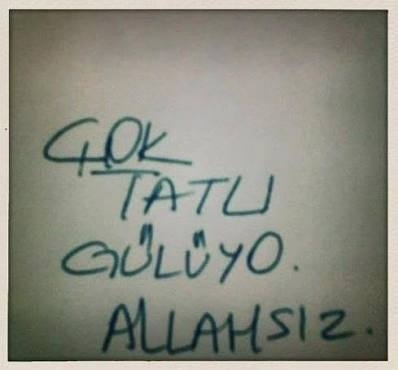 ÇOK
TATLI
GÜLÜYO.
ALLAHSIZ.